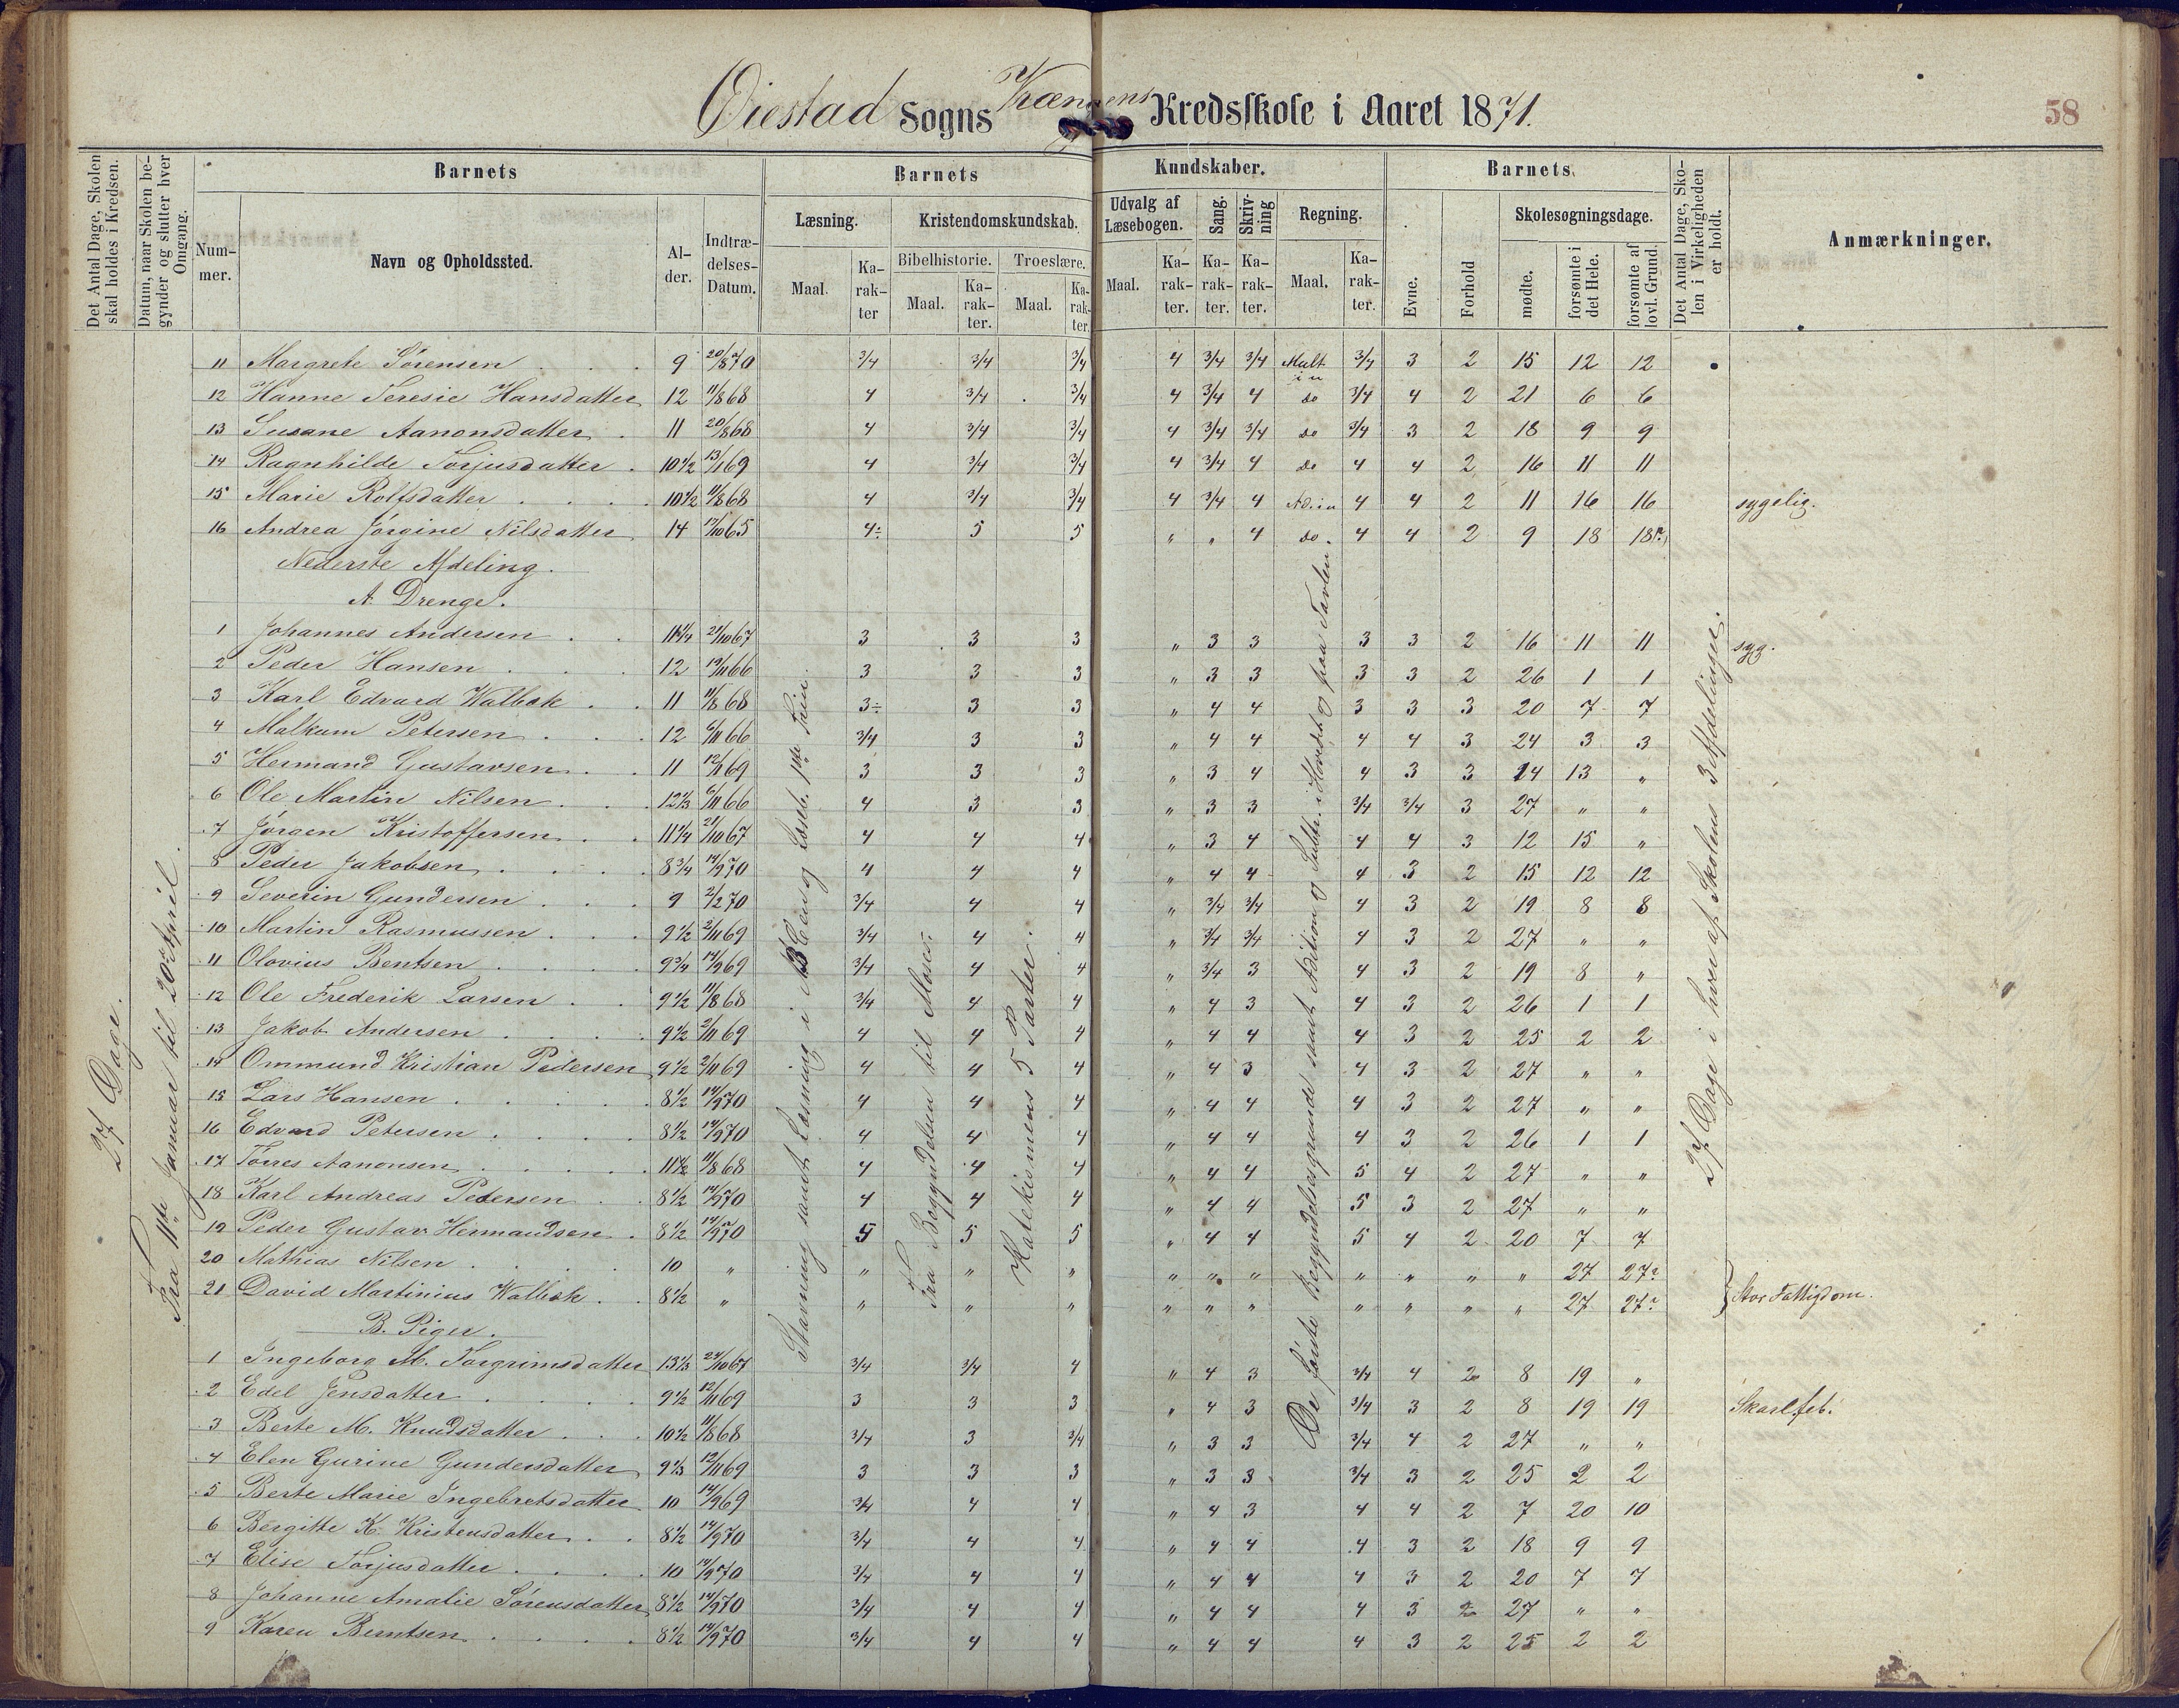 Øiestad Sogns Kredsskole i Aaret 1871.
58
Det Antal Dage, Skolen skal holdes i Kredsen.
Datum, naar Skolen begynder og slutter hver Omgang.
Barnets
Nummer.
Navn og Opholdssted.
Alder.
Indtrædelses-Datum.
Barnets Kundskaber.
Læsning.
Maal.
Karakter
Kristendomskundskab.
Bibelhistorie.
Maal.
Karakter.
Troeslære.
Maal.
Karakter.
Udvalg af Læsebogen.
Maal.
Karakter.
Sang.
Karakter.
Skrivning
Karakter.
Regning.
Maal.
Karakter.
Barnets
Evne.
Forhold
Skolesøgningsdage.
mødte.
forsømte i det Hele.
forsømte af lovl. Grund.
Det Antal Dage, Skolen i Virkeligheden er holdt.
Anmærkninger.
27 Dage.
Fra 11te Januar til 20de April.
Stavning samt Læsning i ABCen og Læseb. 1ste Trin.
Fra Begyndelsen til Moses.
Katekismens 5 Parter.
De første Begyndelsesgrunde samt Adition og Subtr. i Hovedet og paa Tavlen
27 Dage i hver af Skolens 3 Afdelinger.
11 Margrete Sørensen 9 20/8 70 3/4 3/4 3/4 4 3/4 3/4 Mult in 3/4 3 2 15 12 12
12 Hanne Teresie Hansdatter 12 11/8 68 4 3/4 3/4 4 3/4 4 do 3/4 4 2 21 6 6
13 Susane Aanonsdatter 11 20/8 68 4 3/4 3/4 4 3/4 3/4 do 3/4 3 2 18 9 9
14 Ragnhilde Torjusdatter 10 1/2 13/1 69 4 3/4 3/4 4 3/4 4 do 4 4 2 16 11 11
15 Marie Rolfsdatter 10 1/2 11/8 68 4 3/4 3/4 4 3/4 4 Ad. in 4 4 2 11 16 16 sygelig.
16 Andrea Jørgine Nilsdatter 14 /10 65 4÷ 5 5 " " 4 do. 4 4 2 9 18 18?
Nederste Afdeling.
A. Drenge.
1 Johannes Andersen 11 1/4 21/10 67 3 3 3 " 3 3 3 3 2 16 11 11 syg.
2 Peder Hansen 12 /11 66 3 3 3 " 3 3 3 3 2 26 1 1
3 Karl Edvard Walbæk 11 11/8 68 3÷ 3 3 " 4 4 3 3 3 20 7 7
4 Malkum Petersen 12 6/11 66 3/4 3 3 " 4 4 4 4 3 24 3 3
5 Hermand Gustavsen 11 12/1 69 3 3 3 " 3 4 4 3 3 14 13 "
6 Ole Martin Nilsen 12 1/3 6/11 66 4 3 3 " 3 3 3/4 3/4 3 27 " "
7 Jørgen Kristoffersen 11 1/4 21/10 67 4 4 4 " 3 4 4 4 3 12 15 "
8 Peder Jakobsen 8 3/4 14/9 70 4 4 4 " 4 4 4 3 2 15 12 12
9 Severin Gundersen 9 2/2 70 3/4 4 4 " 3/4 3/4 4 3 2 19 8 8
10 Martin Rasmussen 9 1/2 2/11 69 3/4 4 4 " 3/4 3/4 4 3 2 27 " "
11 Olovius Bentsen 9 3/4 14/9 69 3/4 4 4 " 3/4 3 4 3 2 19 8 "
12 Ole Frederik Larsen 9 1/2 11/8 68 3/4 4 4 " 4 3 4 3 2 26 1 1
13 Jakob Andersen 9 1/2 2/11 69 4 4 4 " 4 4 4 3 2 25 2 2
14 Ommund Kristian Pedersen 9 1/2 2/11 69 4 4 4 " 4 3 4 3 2 27 " "
15 Lars Hansen 8 1/2 14/9 70 4 4 4 " 4 4 4 3 2 27 " "
16 Edvard Petersen 8 1/2 14/9 70 4 4 4 " 4 4 4 3 2 26 1 1
17 Tørres Aanonsen 11 1/2 11/8 68 4 4 4 " 4 4 5 4 2 27 " "
18 Karl Andreas Pedersen 8 1/2 14/9 70 4 4 4 " 4 4 5 3 2 27 " "
19 Peder Gustav Hermandsen 8 1/2 14/9 70 5 5 5 " 4 4 5 4 2 20 7 7
20 Mathias Nilsen 10 " " " " " " " " " " " 27 27?
21 David Martinius Walbæk 8 1/2 " " " " " " " " " " " 27 27? Stor Fattigdom.
B. Piger.
1 Ingeborg M. Torgrimsdatter 13 1/3 24/10 67 3/4 3/4 4 " 4 3 3/4 4 2 8 19 "
2 Edel Jensdatter 9 1/2 12/11 69 3 3 3 " 4 3 3/4 3 2 8 19 19 Skarl.feb.
3 Berte M. Knudsdatter 10 1/2 11/8 68 3/4 3 3/4 " 3 3 3/4 4 2 27 " "
4 Elen Gurine Gundersdatter 9 1/3 12/11 69 3 3 3 " 3 3 3/4 3 2 25 2 2
5 Berte Marie Ingebretsdatter 10 14/9 69 3/4 4 4 " 4 3 4 4 2 7 20 10
6 Bergitte K. Kristensdatter 8 1/2 14/9 70 3/4 4 4 " 4 4 4 3 2 18 9 9
7 Elise Torjusdatter 10 14/9 70 3/4 4 4 " 4 4 4 3 2 20 7 7
8 Johanne Amalie Sørensdatter 8 1/2 14/9 70 3/4 4 4 " 4 4 4 3 2 27 " "
9 Karen Berntsen 8 1/2 14/9 70 3/4 4 4 " 4 4 4 3 2 25 2 2